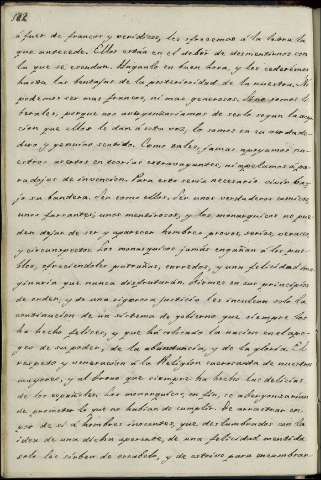 182
á fuer de francos y verídicos, les ofrecemos á la letra la
que antecede. Ellos están en el deber de desmentirnos con
la que se escudan. Háganlo en buen hora, y les cederémos
hasta las ventajas de la posterioridad de la nuestra. No
podemos ser mas francos, ni mas generosos. No somos li-
berales, porque nos avergonzariamos de serlo segun la acep-
cion que ellos le dan á esta voz; lo somos en su verdade-
ro y genuino sentido. Como tales, jamas apoyamos nu-
estros asertos en teorías extravagantes, ni apelamos á pa-
radojas de invencion. Para esto sería necesario vivir ba-
jo su bandera. Ser como ellos. Ser unos verdaderos cómicos,
unos farsantes, unos mentirosos, y los monárquicos no pue-
den dejar de ser y aparecer hombres probos, serios, veraces
y circunspectos. Los monárquicos jamás engañan á los pue-
blos, ofreciéndoles patrañas, enredos, y una felicidad ima-
ginaria que nunca disfrutarán. Firmes en sus principios
de orden, y de una rigorosa justicia, les inculcan solo la
continuacion de un sistema de gobierno que siempre los
ha hecho felices, y que ha colocado la nacion en el apo-
geo de su poder, de la abundancia, y de la gloria. El
respeto y veneracion á la Religion sacrosanta de nuestros
mayores, y al trono que siempre ha hecho las delicias
de los españoles. Los monárquicos, en fin, se avergonzarian
de prometer lo que no habian de cumplir. De arrastrar en
pos de sí á hombres inocentes, que deslumbrados con la
idea de una dicha aparente, de una felicidad mentida
solo les sirben de escabelo, y de estrivo para encumbrar-